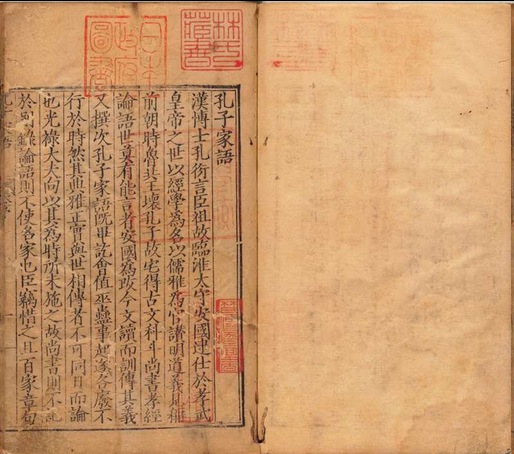 林氏藏書
日本政府圖書
孔子家語
漢博士孔衍言臣祖故臨淮太守安國逮仕於孝武
皇帝之世以經學為名以儒雅為官讚明道義見稱
前朝時魯共王壞孔子故宅得古文科斗尚書孝經
論語世莫有能言者安國為改今文讀而訓傳其義
又撰次孔子家語既畢訖會值巫蠱事起遂各廢不
行於時然其典雅正實與世相傳者不可同日而論
也光祿大夫向以其為時所未施之故尚書則不記
於別錄論語則不使名家也臣竊惜之且百家章句